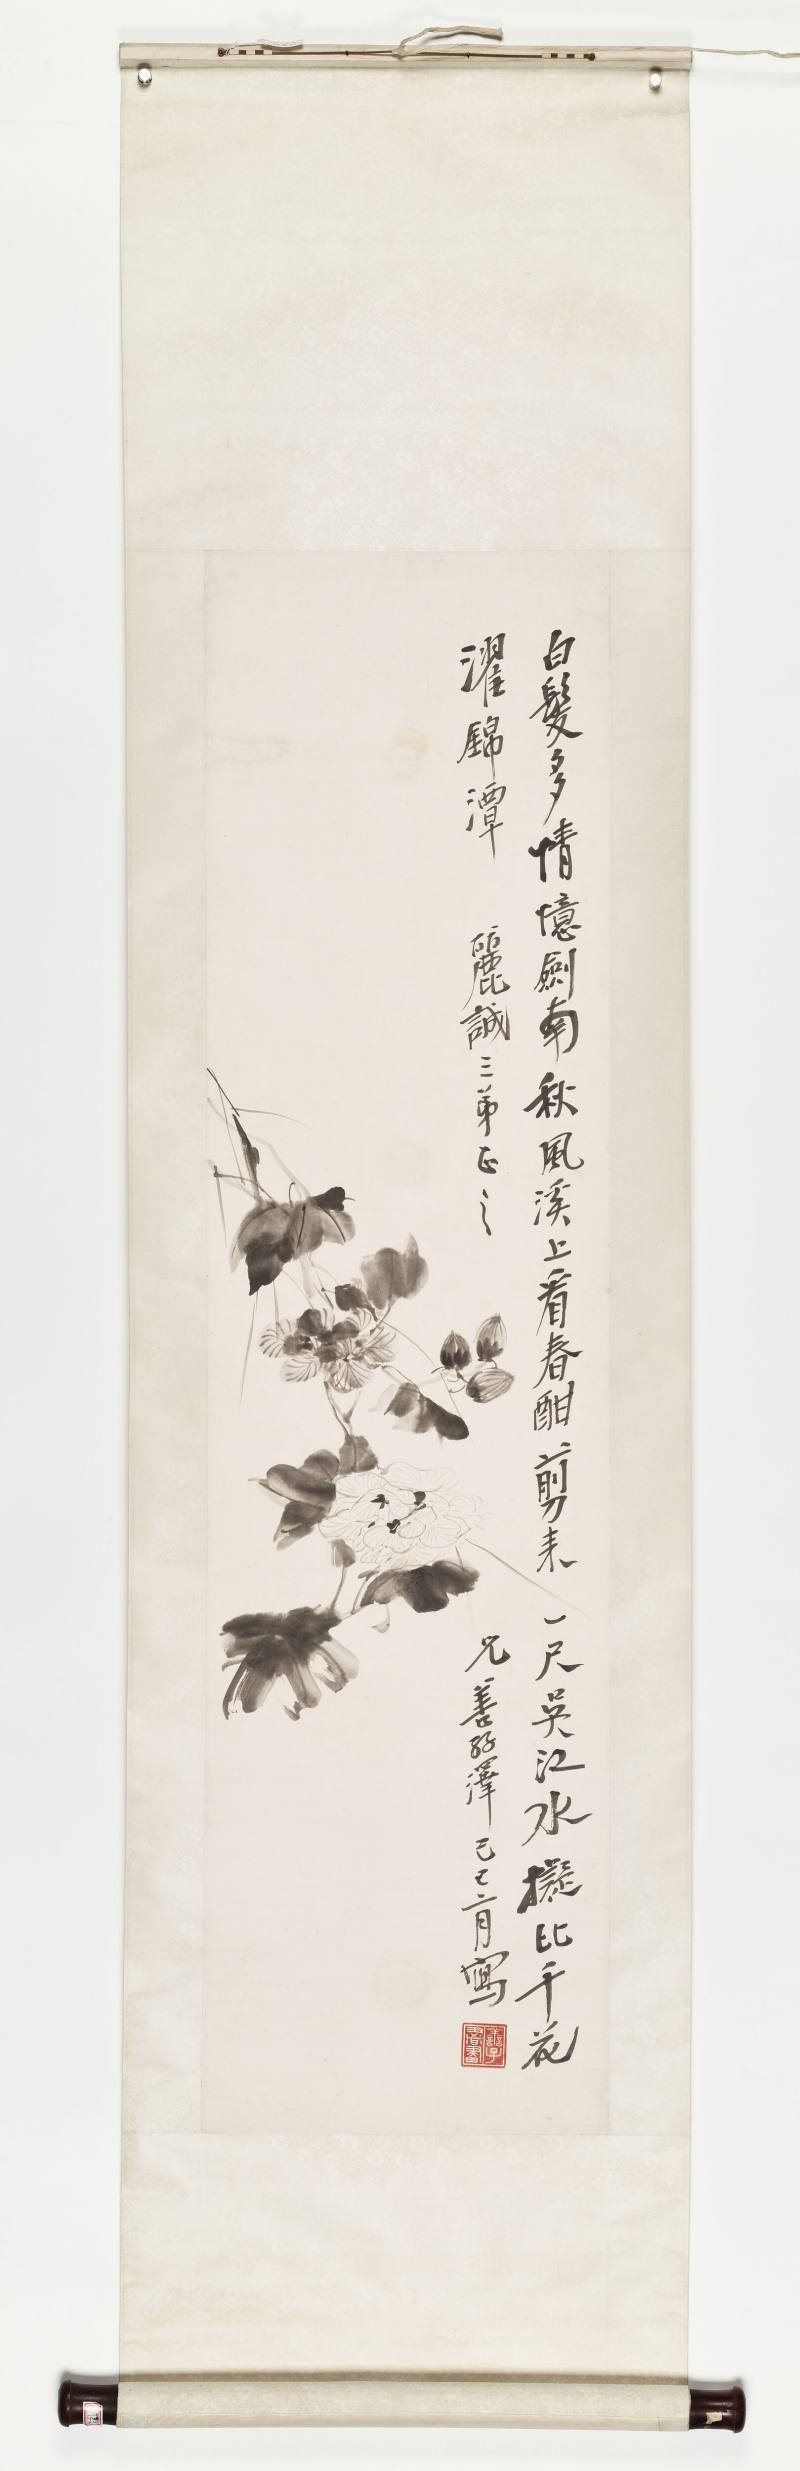 白髮多情憶劍南秋風溪上看春酣剪來一尺吳江水擬比千花
濯錦潭
麗誠三弟正之
兄善孖澤己巳二月寫
善子書畫